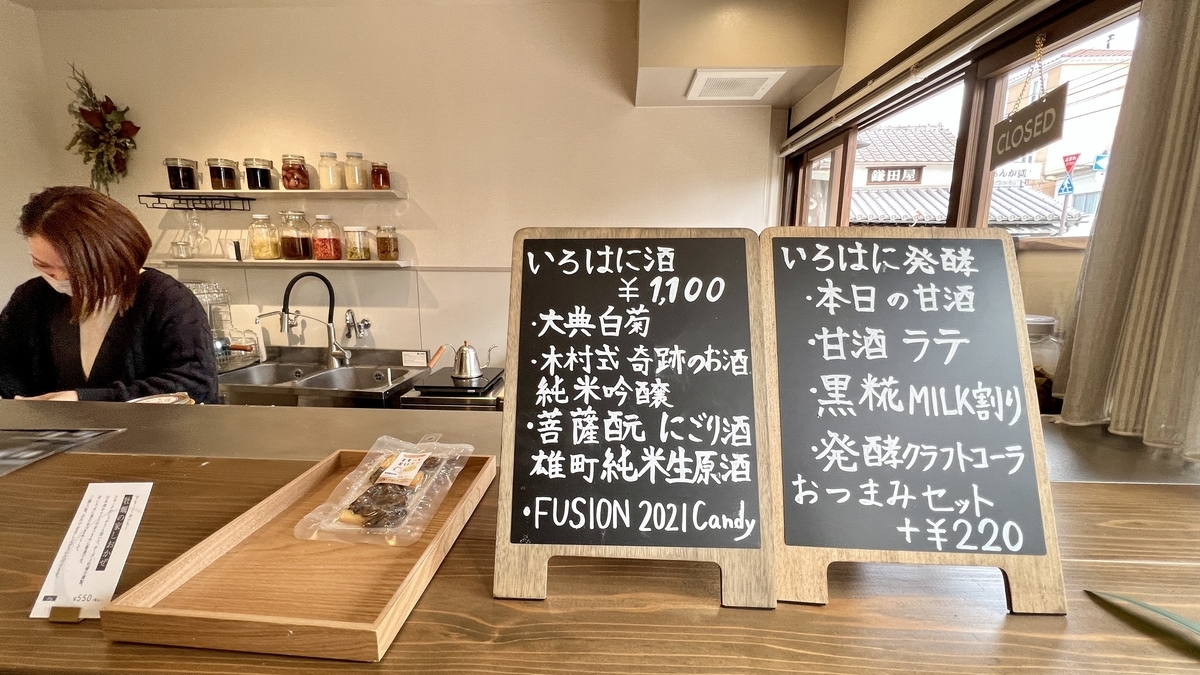 いろはに酒
¥1,100
・大典白菊
・木村式 奇跡のお酒
純米吟醸
・菩薩酛 にごり酒
雄町純米生原酒
・FUSION 2021 Candy
いろはに発酵
・本日の甘酒
・甘酒 ラテ
・黒糀 MILK割り
・発酵クラフトコーラ
おつまみセット
+¥220
CLOSED
鎌田屋
¥550